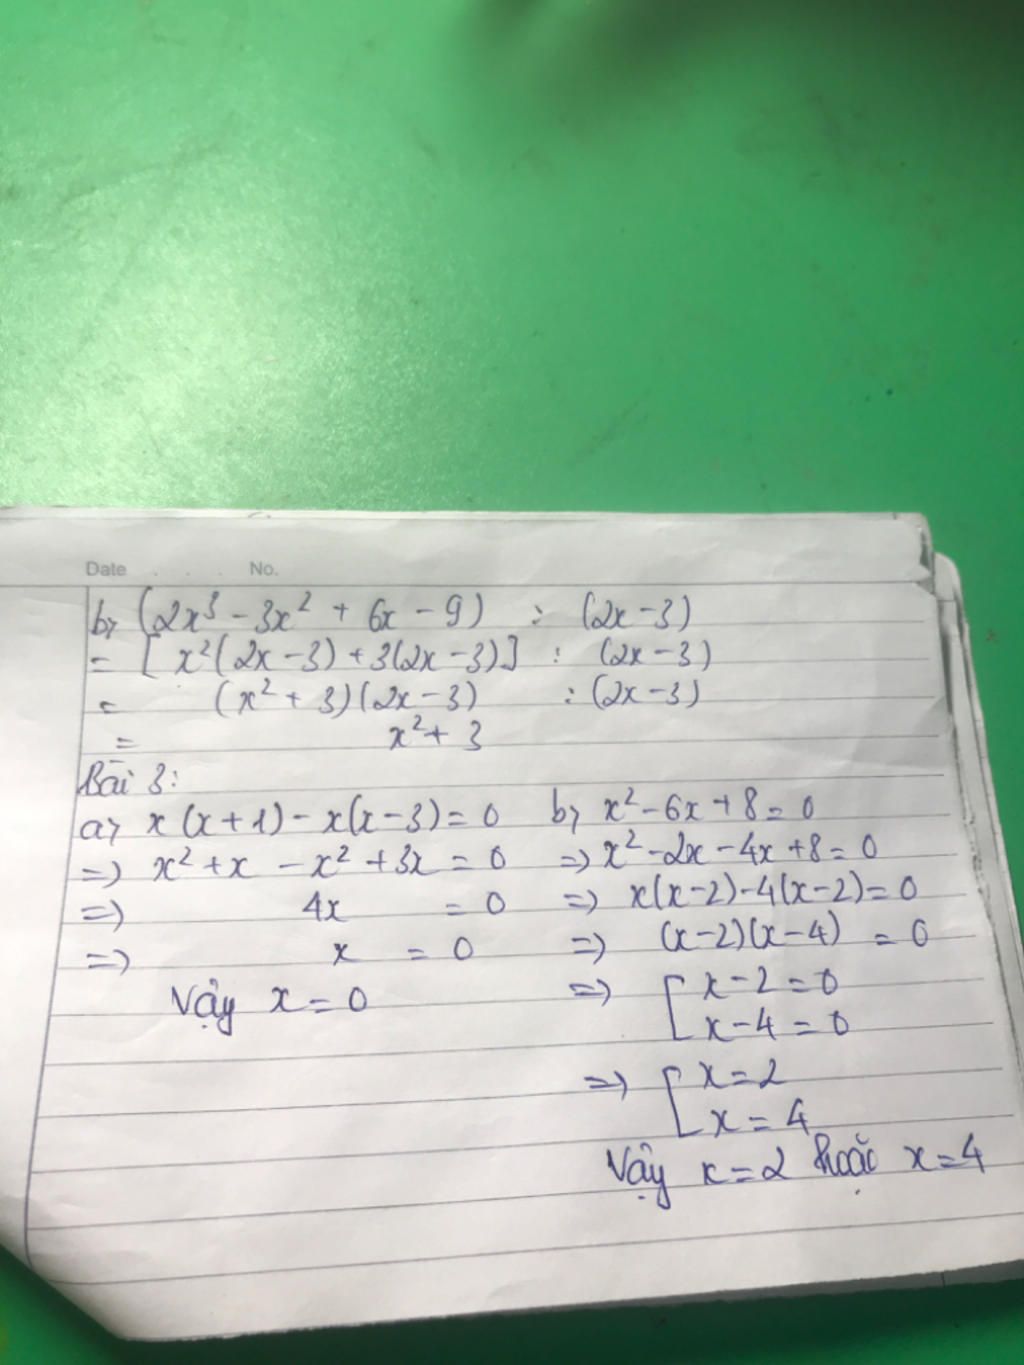 Date . . . No.
b, (2x³ - 3x² + 6x - 9) : (2x - 3)
= [x²(2x - 3) + 3(2x - 3)] : (2x - 3)
= (x² + 3)(2x - 3) : (2x - 3)
= x² + 3
Bài 3:
a, x(x + 1) - x(x - 3) = 0
=> x² + x - x² + 3x = 0
=> 4x = 0
=> x = 0
Vậy x = 0
b, x² - 6x + 8 = 0
=> x² - 2x - 4x + 8 = 0
=> x(x - 2) - 4(x - 2) = 0
=> (x - 2)(x - 4) = 0
=> [ x - 2 = 0
x - 4 = 0
=> [ x = 2
x = 4
Vậy x = 2 hoặc x = 4